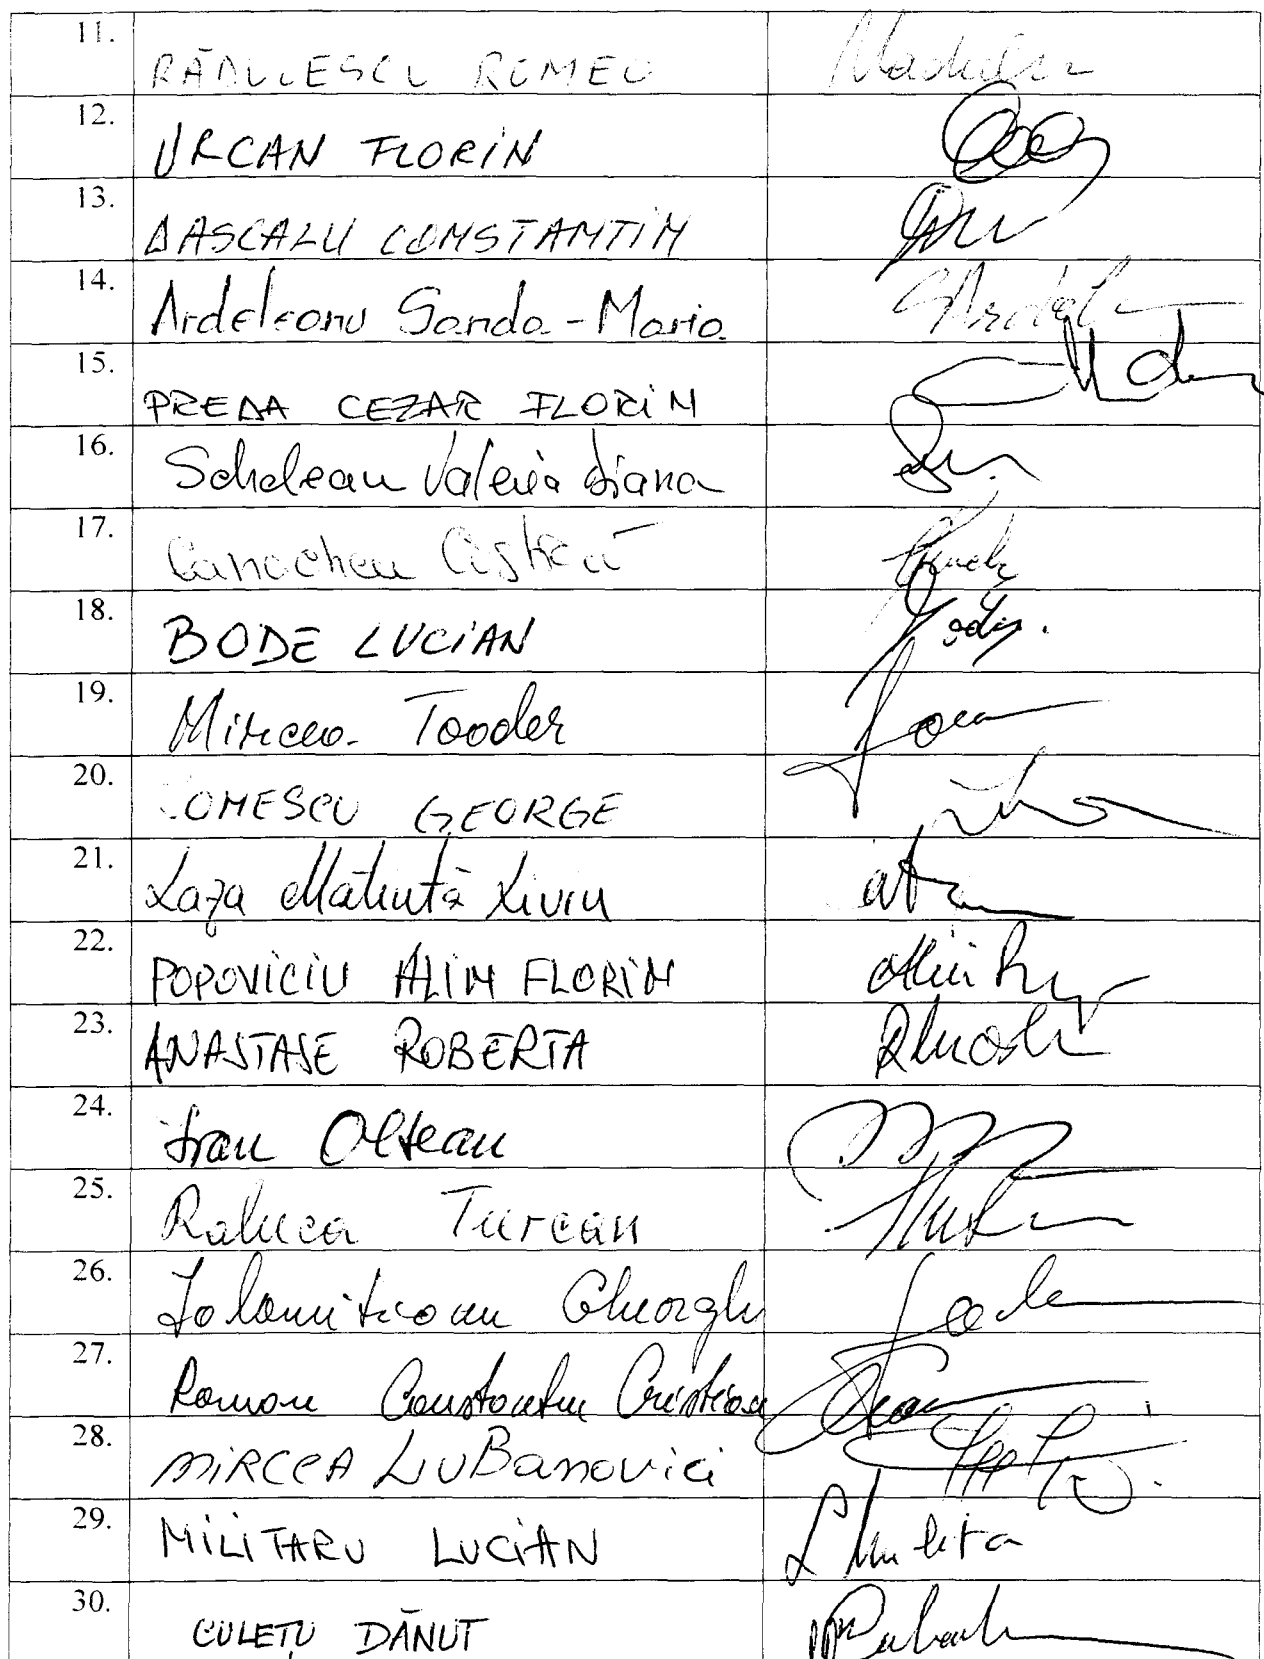 11. RĂDULESCU ROMEO
12. URCAN FLORIN
13. DASCALU CONSTANTIN
14. Ardeleanu Sanda-Maria
15. PREDA CEZAR FLORIN
16. Schelean Valeria Diana
17. Canacheu Costică
18. BODE LUCIAN
19. Mircea Toader
20. IONESCU GEORGE
21. Laza Mătiuță Liviu
22. POPOVICIU ALIN FLORIN
23. ANASTASE ROBERTA
24. Ioan Oltean
25. Raluca Turcan
26. Ialomitioanu Gheorghe
27. Roman Constantin Cristian
28. MIRCEA LuBanovici
29. MILITARU LUCIAN
30. CULEȚU DĂNUT